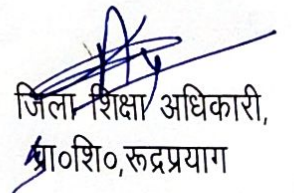 जिला शिक्षा अधिकारी,
प्रा०शि०,रूद्रप्रयाग